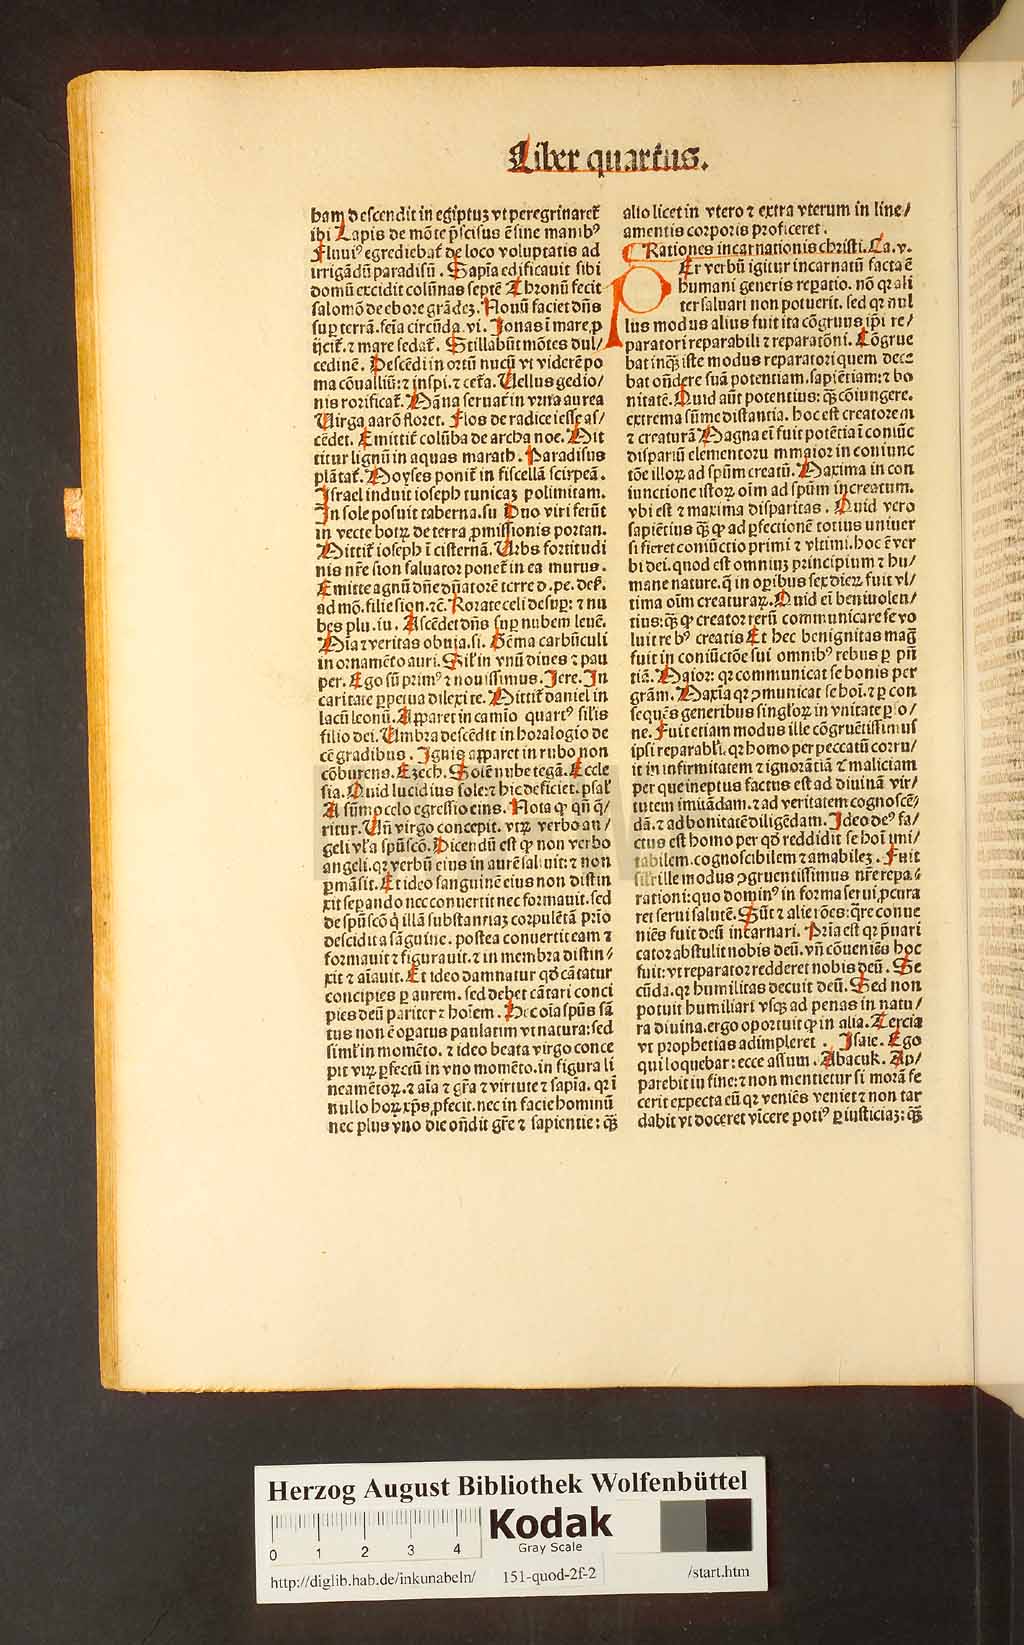 Liber quartus.
ham descendit in egiptuꝫ vt peregrinaret᷑
ibi Lapis de mõte p̃scisus ẽ sine manibꝰ
Fluuiꝰ egrediebat᷑ de loco voluptatis ad
irrigãdũ paradisũ. Sapia edificauit sibi
domũ excidit colũnas septẽ Thronũ fecit
salomõ de ebore grãdeꝫ. Nouũ faciet dñs
suꝑ terrã. feĩa circũda. vi. Jonas ĩ mare ꝓ
ijcit᷑. ⁊ mare sedat᷑. Stillabũt mõtes dul/
cedinẽ. Descẽdi in ortũ nucũ vt viderẽ po
ma cõualliũ: ⁊ inspi. ⁊ cet̃a. Uellus gedio/
nis rorificat᷑. Mãna seruat᷑ in vrna aurea
Uirga aarõ floret. Flos de radice iesse as/
cẽdet. Emittit᷑ colũba de archa noe. Mit
titur lignũ in aquas marath. Paradisus
plãtat᷑. Moyses ponit᷑ in fiscella scirpeã.
Israel induit ioseph tunicaꝫ polimitam.
In sole posuit taberna. su Duo viri ferũt
in vecte botꝝ de terra ꝓmissionis portan.
Mittit᷑ ioseph ĩ cisternã. Urbs fortitudi
nis nr̃e sion saluator ponet᷑ in ea murus.
Emitte agnũ dñe dñatorẽ terre d. pe. des̃.
ad mõ. filie sion. ⁊c̃. Rorate celi desuꝑ: ⁊ nu
bes plu. iu. Ascẽdet dñs suꝑ nubem leuẽ.
Mĩa ⁊ veritas obuia. si. Gẽma carbũculi
in ornamẽto auri. Sil̃ in vnũ diues ⁊ pau
per. Ego sũ primꝰ ⁊ nouissimus. Jere. In
caritate ꝑpetua dilexi te. Mittit᷑ daniel in
lacũ leonũ. Apparet in camio quartꝰ sil̃is
filio dei. Umbra descẽdit in horalogio de
cẽ gradibus. Ignis apparet in rubo non
cõburens. Ezech. Soiẽ nube tegã. Eccle
sia. Quid lucidius sole: ⁊ hic deficiet. psal̃
A sũmo celo egressio eius. Nota ꝙ qñ q̃/
ritur. Uñ virgo concepit. vtꝝ verbo an/
geli vl̃a spũscõ. Dicendũ est ꝙ non verbo
angeli. qꝛ verbũ eius in aurẽ saluit: ⁊ non
ꝑmãsit. Et ideo sanguinẽ eius non distin
xit sepando nec conuertit nec formauit. sed
de spũscõ q̇ illã substantiaꝫ corpulẽtã p̃rio
descidit a sãguine. postea conuertit eam ⁊
formauit ⁊ figurauit. ⁊ in membra distin/
xit ⁊ aĩauit. Et ideo damnatur qd̃ cãtatur
concipies ꝑ aurem. sed debet cãtari conci
pies deũ pariter ⁊ hoĩem. Hec oĩa spũs sã
tus non ẽ oꝑatus paulatim vt natura: sed
siml̃ in momẽto. ⁊ ideo beata virgo conce
pit viꝝ ꝑfectũ in vno momẽto. in figura li
neamẽtoꝝ. ⁊ aĩa ⁊ gr̃a ⁊ virtute ⁊ sapĩa. qꝛ ĩ
nullo hoꝝ xp̃s ꝓfecit. nec in facie hominũ
nec plus vno die oñdit gr̃e ⁊ sapientie: q̃ꝫ
alio licet in vtero ⁊ extra vterum in line/
amentis corporis proficeret.
Rationes incarnationis christi. Ca. v.
PEr verbũ igitur incarnatũ facta ẽ
humani generis reꝑatio. nõ qꝛ ali
ter saluari non potuerit. sed qꝛ nul
lus modus alius fuit ita cõgruus ip̃i re/
paratori reparabili ⁊ reparatõni. Cõgrue
bat inq̃ꝫ iste modus reparatori quem dece
bat oñdere suã potentiam. sapiẽtiam: ⁊ bo
nitatẽ. Quid aũt potentius: q̃ꝫ cõiungere.
extrema sũme distantia. hoc est creatorem
⁊ creaturã Magna eĩ fuit potẽtia ĩ coniũc
disparium elementoru mmaior in coniunc
tõe illoꝝ ad spũm creatũ. Maxima in con
iunctione istoꝝ oĩm ad spũm increatum.
vbi est ⁊ maxima disparitas. Quid vero
sapiẽtius q̃ꝫ ꝙ ad ꝑfectionẽ totius vniuer
si fieret coniũctio primi ⁊ vltimi. hoc ẽ ver
bi dei. quod est omniuꝫ principium ⁊ hu/
mane nature. q̃ in oꝑibus sex dieꝝ fuit vl/
tima oĩm creaturaꝝ. Quid eĩ beniuolen/
tius: q̃ꝫ ꝙ creator rerũ communicare se vo
luit rebꝰ creatis Et hec benignitas mag̃
fuit in coniũctõe sui omnibꝰ rebus ꝑ pñ
tiã. Maior: qꝛ communicat se bonis per
grãm. Maxĩa qꝛ ꝯmunicat se hoĩ. ⁊ ꝑ con
sequẽs generibus singl̃oꝝ in vnitate ꝑso/
ne. Fuit etiam modus ille cõgruẽtissimus
ipsi reparabl̃i. qꝛ homo per peccatũ corru/
it in infirmitatem ⁊ ignorãtiã ⁊ maliciam
per que ineptus factus est ad diuinã vir/
tutem imitãdam. ⁊ ad veritatem cognoscẽ/
dã. ⁊ ad bonitatẽ diligẽdam. Ideo deꝰ fa/
ctus est homo per qd̃ reddidit se hoĩ imi/
tabilem. cognoscibilem ⁊ amabileꝫ. Fuit
sil̃r ille modus ꝯgruentissimus nr̃e repa/
rationi: quo dominꝰ in forma serui ꝓcura
ret serui salutẽ. Sũt ⁊ alie rões: q̃re conue
niẽs fuit deũ incarnari. Pria est qꝛ p̃uari
cator abstulit nobis deũ. vñ cõueniẽs hoc
fuit: vt reparator redderet nobis deũ. Se
cũda. qꝛ humilitas decuit deũ. Sed non
potuit humiliari vsqꝫ ad penas in natu/
ra diuina. ergo oportuit ꝙ in alia. Tercia
vt prophetias adimpleret. Isaie. Ego
qui loquebar: ecce assum. Abacuk. Ap/
parebit in fine: ⁊ non mentietur si morã fe
cerit expecta eũ qꝛ veniẽs veniet ⁊ non tar
dabit vt doceret vĩcere potiꝰ ꝑ iusticiaꝫ: q̃ꝫ
Herzog August Bibliothek Wolfenbüttel
0 1 2 3 4
Kodak
Gray Scale
http://diglib.hab.de/inkunabeln/ 151-quod-2f-2 /start.htm